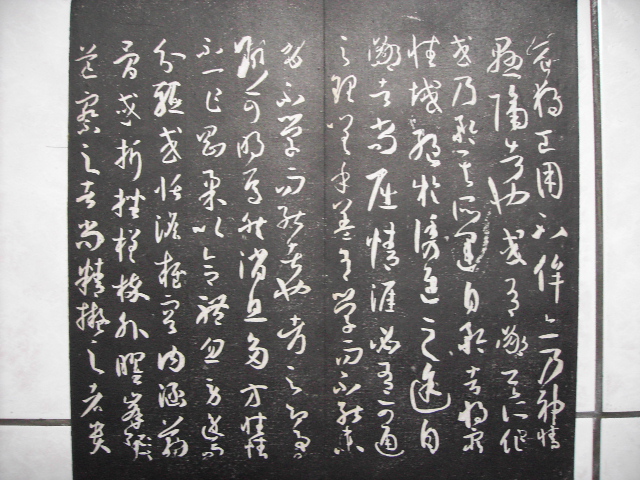 豈獨工用不侔亦乃神情
懸隔者也或有鄙其所作
或乃矜其所運自矜者將窮
性域絕於誘進之途自
鄙者尚屈情涯必有可通
之理嗟乎蓋有學而不能未
有不學而能者也考之即事
斷可明焉然消息多方性情
不一乍剛柔以合體忽勞逸而
分驅或恬澹雍容內涵筋
骨或折挫槎枿外曜鋒
芒察之者尚精擬之者貴